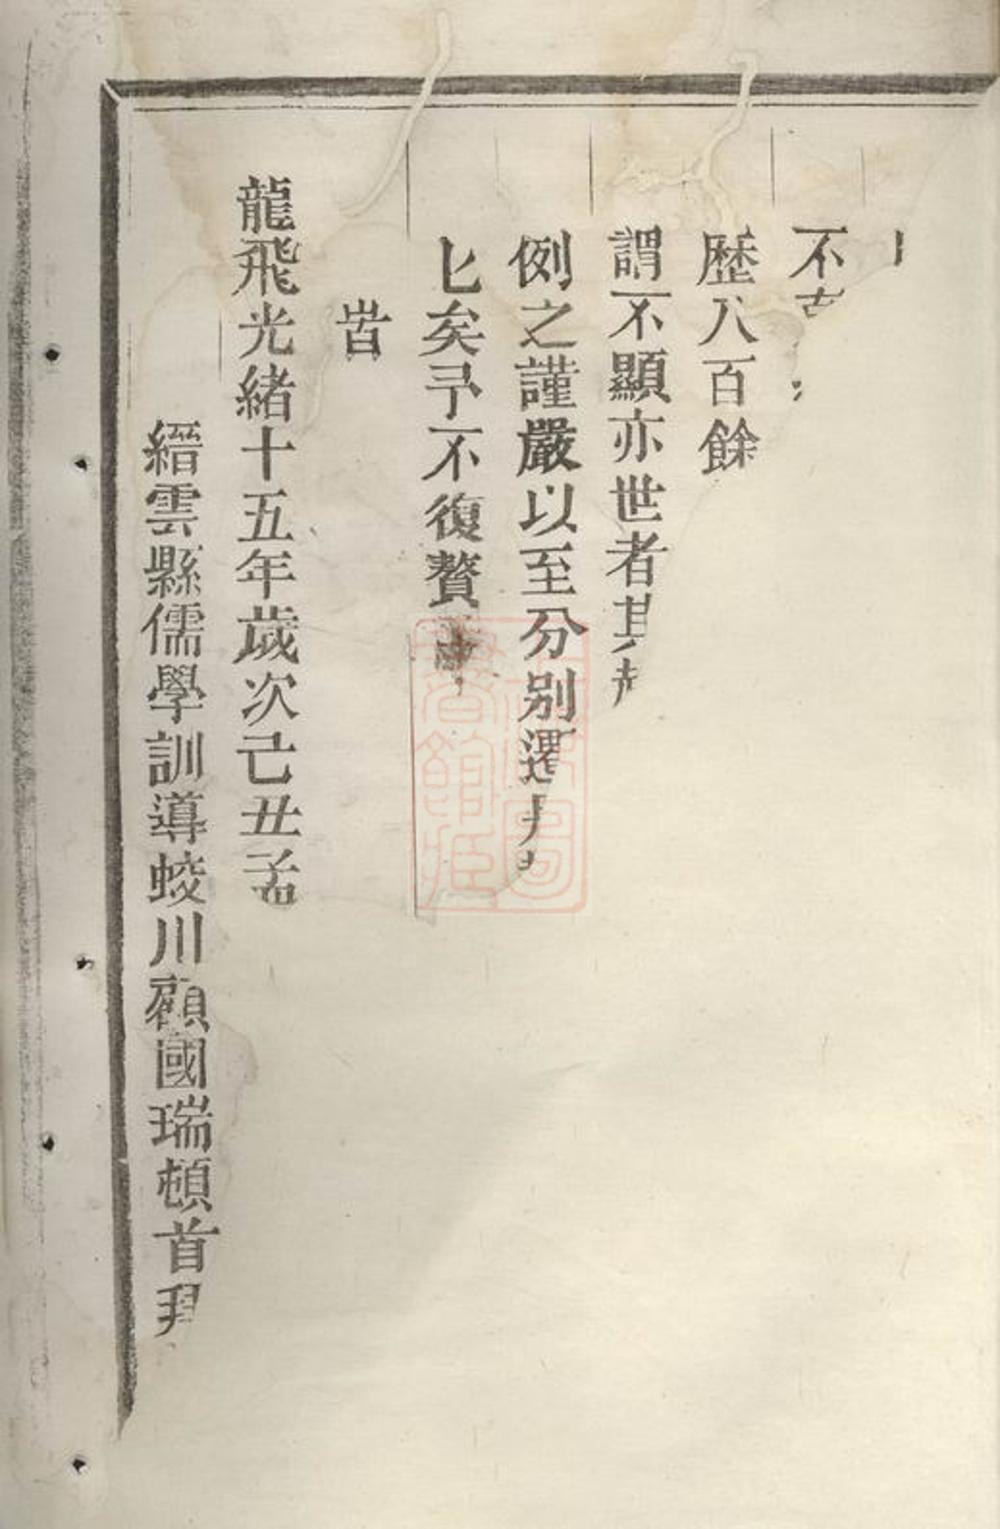 不
歷八百餘
謂不顯亦世者其
例之謹嚴以至分别選
匕矣予不復贅
旹
龍飛光緒十五年歲次己丑孟
縉雲縣儒學訓導蛟川顧國瑞頓首拜